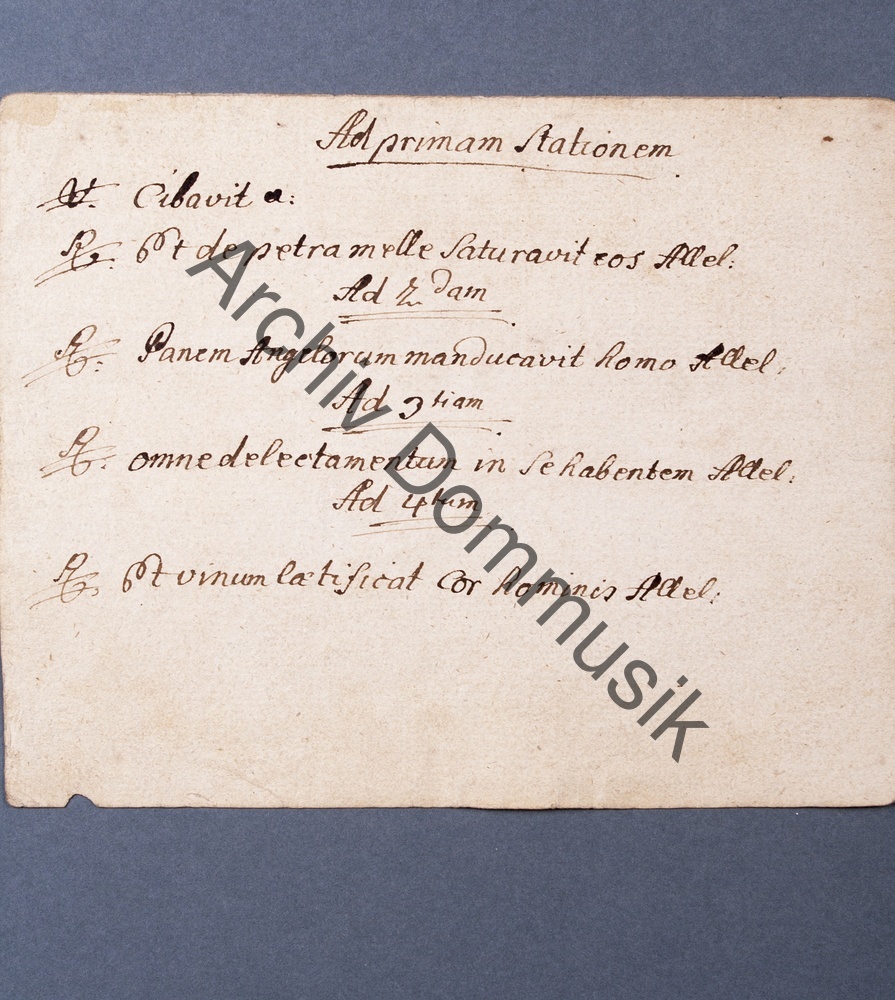 Ad primam Stationem
℣. Cibavit a:
℟. Et de petra melle Saturavit eos Allel:
Ad 2dam
℟. Panem Angelorum manducavit homo Allel:
Ad 3tiam
℟. omne delectamentum in se habentem Allel:
Ad 4tam
℟. Et vinum lætificat Cor hominis Allel:
Archiv Dommusik